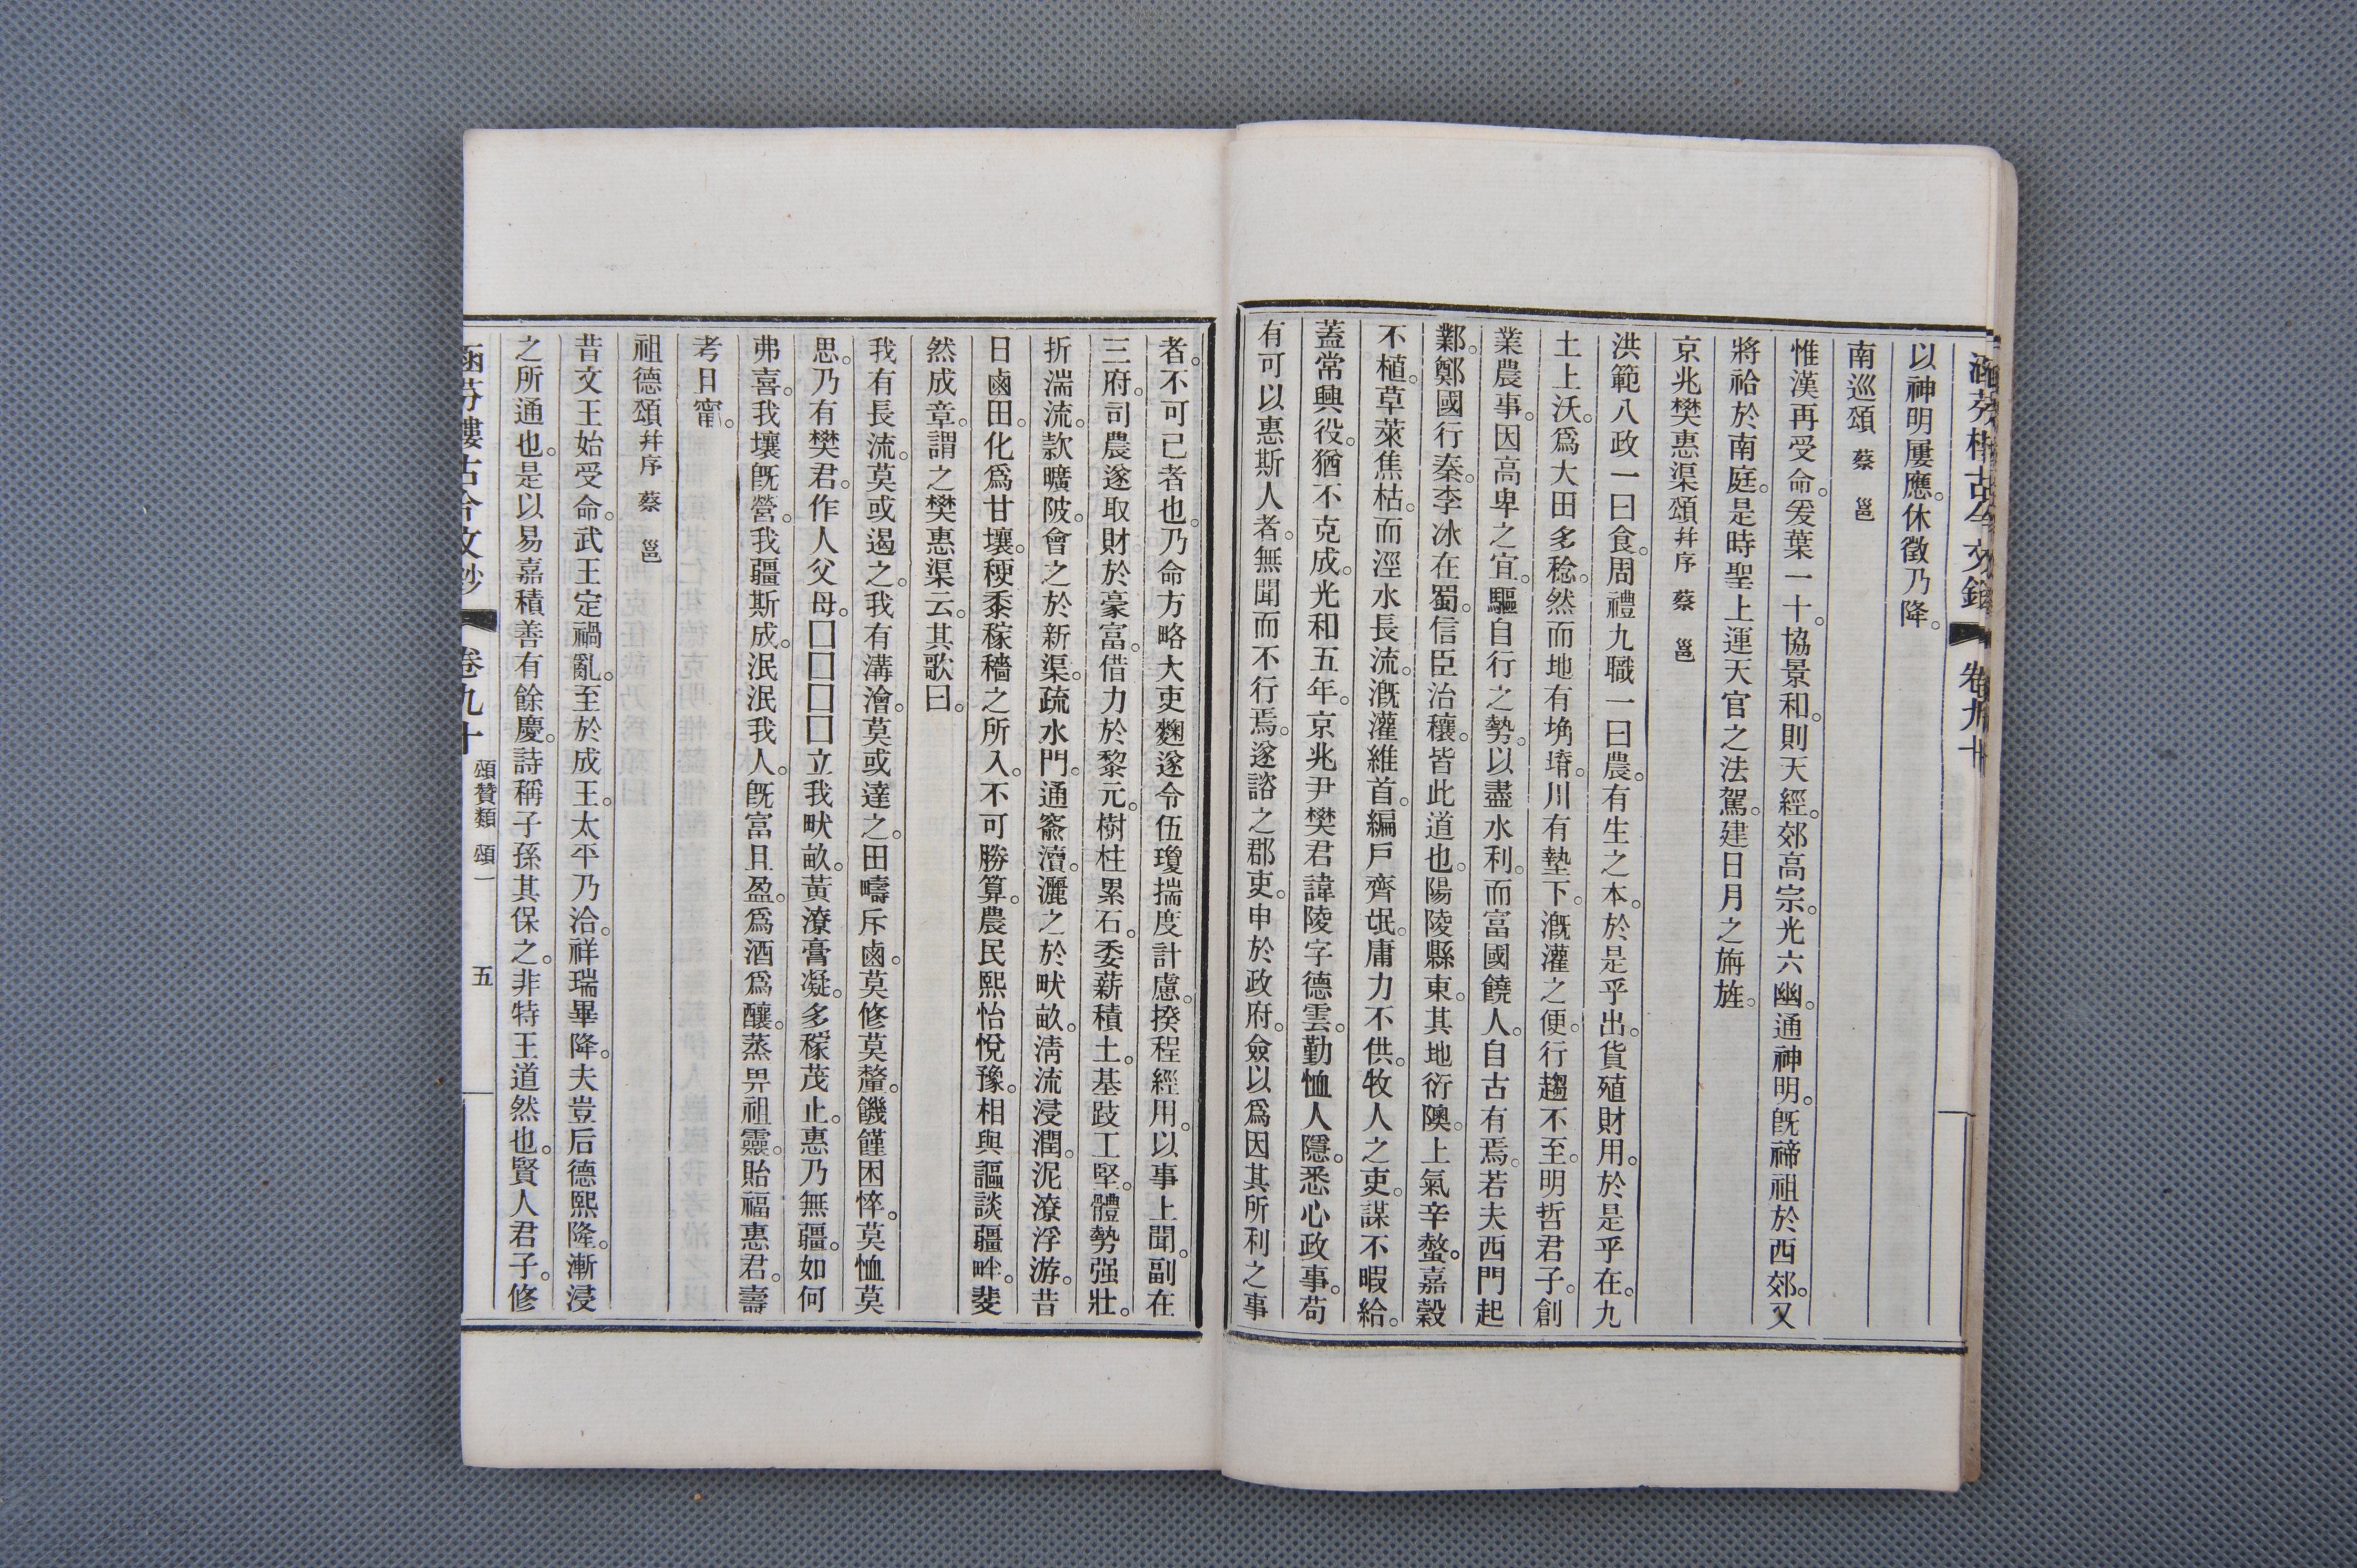 涵芬樓古今文鈔 卷九十
以神明屢應。休徵乃降。
南巡頌 蔡邕
惟漢再受命。爰葉一十。協景和。則天經。郊高宗。光六幽。通神明。旣禘祖於西郊。又
將祫於南庭。是時聖上運天官之法駕。建日月之旃旌。
京兆樊惠渠頌幷序 蔡邕
洪範八政一曰食。周禮九職一曰農。有生之本。於是乎出。貨殖財用。於是乎在。九
土上沃。爲大田多稔。然而地有埆塉。川有墊下。漑灌之便。行趨不至。明哲君子。創
業農事。因高卑之宜。驅自行之勢。以盡水利。而富國饒人。自古有焉。若夫西門起
鄴。鄭國行秦。李冰在蜀。信臣治穰。皆此道也。陽陵縣東。其地衍隩。上氣辛螫。嘉穀
不植。草萊焦枯。而涇水長流。漑灌維首。編戶齊氓。庸力不供。牧人之吏。謀不暇給。
蓋常興役。猶不克成。光和五年。京兆尹樊君諱陵字德雲。勤恤人隱。悉心政事。苟
有可以惠斯人者。無聞而不行焉。遂諮之郡吏。申於政府。僉以爲因其所利之事
者。不可已者也。乃命方略大吏麴遂令伍瓊揣度計慮。揆程經用。以事上聞。副在
三府。司農遂取財於豪富。借力於黎元。樹柱累石。委薪積土。基跂工堅。體勢强壯。
折湍流。款曠陂。會之於新渠。疏水門。通窬瀆。灑之於畎畝。淸流浸潤。泥潦浮游。昔
日鹵田。化爲甘壤。稉黍稼穡之所入。不可勝算。農民熙怡悅豫。相與謳談疆畔。斐
然成章。謂之樊惠渠云。其歌曰。
我有長流。莫或遏之。我有溝澮。莫或達之。田疇斥鹵。莫修莫釐。饑饉困悴。莫恤莫
思。乃有樊君。作人父母。□□□□立我畎畝。黃潦膏凝。多稼茂止。惠乃無疆。如何
弗喜。我壤旣營。我疆斯成。泯泯我人。旣富且盈。爲酒爲釀。蒸畀祖靈。貽福惠君。壽
考且甯。
祖德頌幷序 蔡邕
昔文王始受命。武王定禍亂。至於成王。太平乃洽。祥瑞畢降。夫豈后德熙隆。漸浸
之所通也。是以易嘉積善有餘慶。詩稱子孫其保之。非特王道然也。賢人君子。修
涵芬樓古今文鈔 卷九十 頌贊類 頌一 五